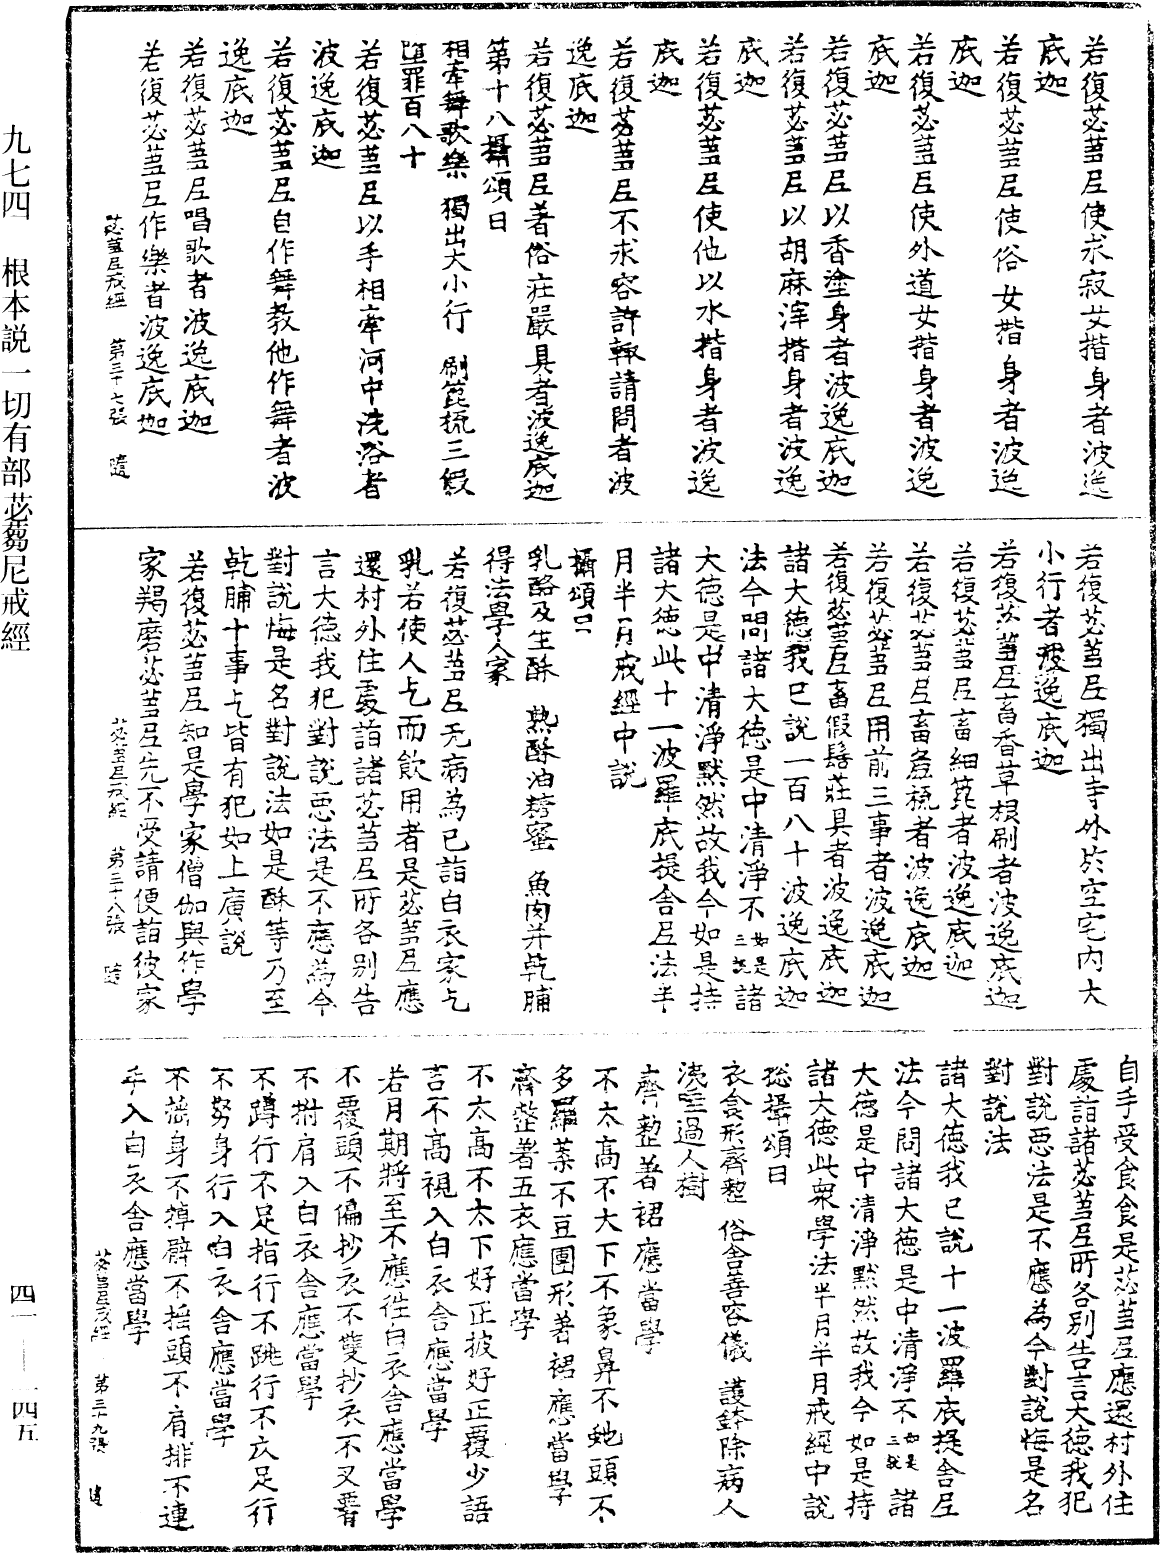 若復苾蒭尼使求寂女揩身者波逸
底迦
若復苾蒭尼使俗女揩身者波逸
底迦
若復苾蒭尼使外道女揩身者波逸
底迦
若復苾蒭尼以香塗身者波逸底迦
若復苾蒭尼以胡麻滓揩身者波逸
底迦
若復苾蒭尼使他以水揩身者波逸
底迦
若復苾蒭尼不求容許輙請問者波
逸底迦
若復苾蒭尼著俗莊嚴具者波逸底迦
第十八攝頌曰
相牽舞歌樂 獨出大小行 刷箆梳三假
墮罪百八十
若復苾蒭尼以手相牽河中洗浴者
波逸底迦
若復苾蒭尼自作舞教他作舞者波
逸底迦
若復苾蒭尼唱歌者波逸底迦
若復苾蒭尼作樂者波逸底迦
苾蒭尼戒經 第三十七張 隨
若復苾蒭尼獨出寺外於空宅內大
小行者波逸底迦
若復苾蒭尼畜香草根刷者波逸底迦
若復苾蒭尼畜細箆者波逸底迦
若復苾蒭尼畜麁梳者波逸底迦
若復苾蒭尼用前三事者波逸底迦
若復苾蒭尼畜假髻莊具者波逸底迦
諸大德我已說一百八十波逸底迦
法今問諸大德是中清淨不如是三說諸
大德是中清淨默然故我今如是持
諸大德此十一波羅底提舍尼法半
月半月戒經中說
攝頌曰
乳酪及生酥 熟酥油糖蜜 魚肉并乾脯
得法學人家
若復苾蒭尼无病為己詣白衣家乞
乳若使人乞而飲用者是苾蒭尼應
還村外住處詣諸苾蒭尼所各別告
言大德我犯對說惡法是不應為今
對說悔是名對說法如是酥等乃至
乾脯十事乞皆有犯如上廣說
若復苾蒭尼知是學家僧伽與作學
家羯磨苾蒭尼先不受請便詣彼家
苾蒭尼戒經 第三十八張 隨
自手受食食是苾蒭尼應還村外住
處詣諸苾蒭尼所各別告言大德我犯
對說惡法是不應為今對說悔是名
對說法
諸大德我已說十一波羅底提舍尼
法今問諸大德是中清淨不如是三說諸
大德是中清淨默然故我今如是持
諸大德此衆學法半月半月戒經中說
惣攝頌曰
衣食形齊整 俗舍善容儀 護鉢除病人
洟唾過人樹
齊整著裙應當學
不太高不大下不象鼻不虵頭不
多羅葉不豆團形著裙應當學
齊整著五衣應當學
不太高不太下好正披好正覆少語
言不高視入白衣舍應當學
若月期將至不應往白衣舍應當學
不覆頭不偏抄衣不雙抄衣不叉腰
不拊肩入白衣舍應當學
不蹲行不足指行不跳行不仄足行
不努身行入白衣舍應當學
不搖身不掉臂不搖頭不肩排不連
手入白衣舍應當學
苾蒭尼戒經 第三十九張 隨
九七四 根本說一切有部苾蒭尼戒經
四一——一四五